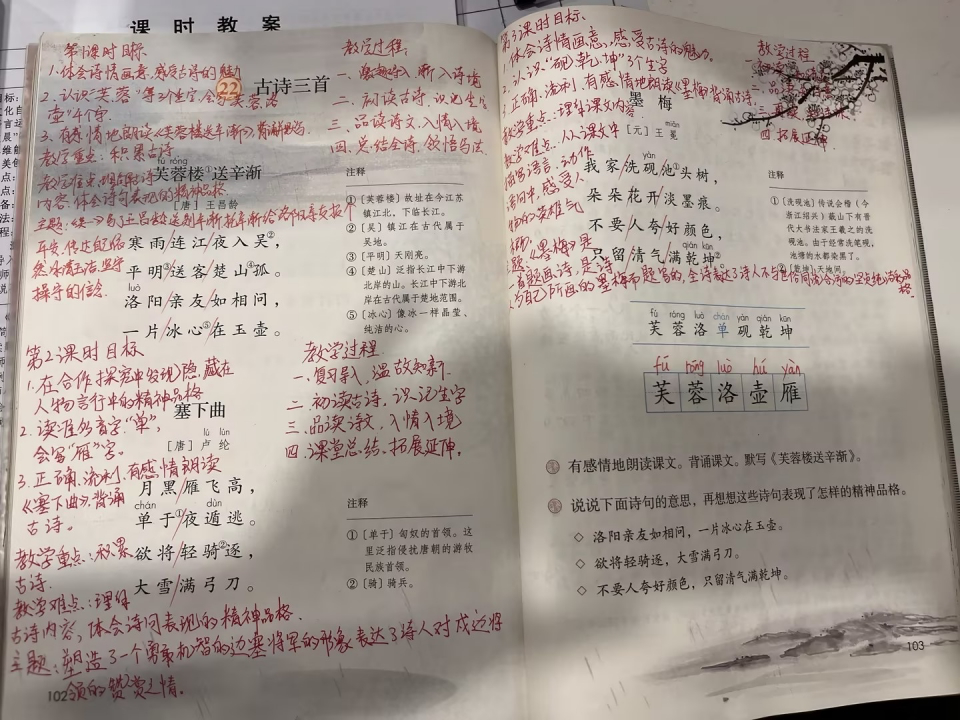 课时教案
第1课时目标
1.体会诗情画意,感受古诗的魅力
2.认识“芙蓉”等3个生字,会写芙蓉洛
壶“4个字.
3.有感情地朗读《芙蓉楼送辛渐》,背诵
教学重点:积累古诗
教学难点:理解古诗
内容,体会诗句表现的精神品格
教学过程:
一、
二、初读古诗,识记生字
三、品读诗文,入情入境
四、总结全诗,领悟写法
22 古诗三首
fú róng
芙蓉楼①送辛渐
[唐]王昌龄
寒雨/连江/夜入吴②,
平明③/送客/楚山④孤。
luò
洛阳/亲友/如相问,
一片/冰心⑤/在玉壶。
操守的信念
注释
①[芙蓉楼]故址在今江苏
镇江北,下临长江。
②[吴]镇江在古代属于
吴地。
③[平明]天刚亮。
④[楚山]泛指长江中下游
北岸的山。长江中下游北
岸在古代属于楚地范围。
⑤[冰心]像冰一样晶莹、
纯洁的心。
第2课时目标
1.在合作探究中发现隐藏在
人物言行中的精神品格
2.读准多音字“单”,
会写“雁”字。
3.正确、流利、有感情朗读
《塞下曲》,背诵
古诗。
教学重点:积累
古诗.
教学难点:理解
古诗内容,体会诗句表现的精神品格.
主题:塑造了一个勇敢机智的边塞将军的形象,表达了诗人对戍边将
领的赞赏之情。
教学过程
一、复习导入,温故知新.
二、初读古诗,识记生字
三、品读诗文,入情入境
四、课堂总结、拓展延伸,
塞下曲
lú lún
[唐]卢纶
月黑/雁飞高,
chán dùn
单于①/夜遁逃。
欲将/轻骑②逐,
大雪/满弓刀。
注释
①[单于]匈奴的首领。这
里泛指侵扰唐朝的游牧
民族首领。
②[骑]骑兵。
102
第3课时目标.
1.体会诗情画意,感受古诗的魅力.
2.认识“砚、乾、坤”3个生字
3.正确、流利、有感情地朗读《墨梅》背诵古诗.
教学重点:理解课文内容
教学难点:从课文中
教学过程
四.拓展延伸.
墨梅
miǎn
[元]王冕
yàn
我家/洗砚池①头树,
朵朵/花开/淡墨痕。
不要/人夸/好颜色,
qián kūn
只留/清气/满乾坤②。
注释
①[洗砚池]传说会稽(今
浙江绍兴)蕺山下有晋
代大书法家王羲之的洗
砚池。由于经常洗笔砚,
池塘的水都染黑了。
②[乾坤]天地间。
fú róng luò chán yàn qián kūn
芙 蓉 洛 单 砚 乾 坤
fú róng luò hú yàn
芙蓉洛壶雁
有感情地朗读课文。背诵课文。默写《芙蓉楼送辛渐》。
说说下面诗句的意思,再想想这些诗句表现了怎样的精神品格。
◇ 洛阳亲友如相问,一片冰心在玉壶。
◇ 欲将轻骑逐,大雪满弓刀。
◇ 不要人夸好颜色,只留清气满乾坤。
103